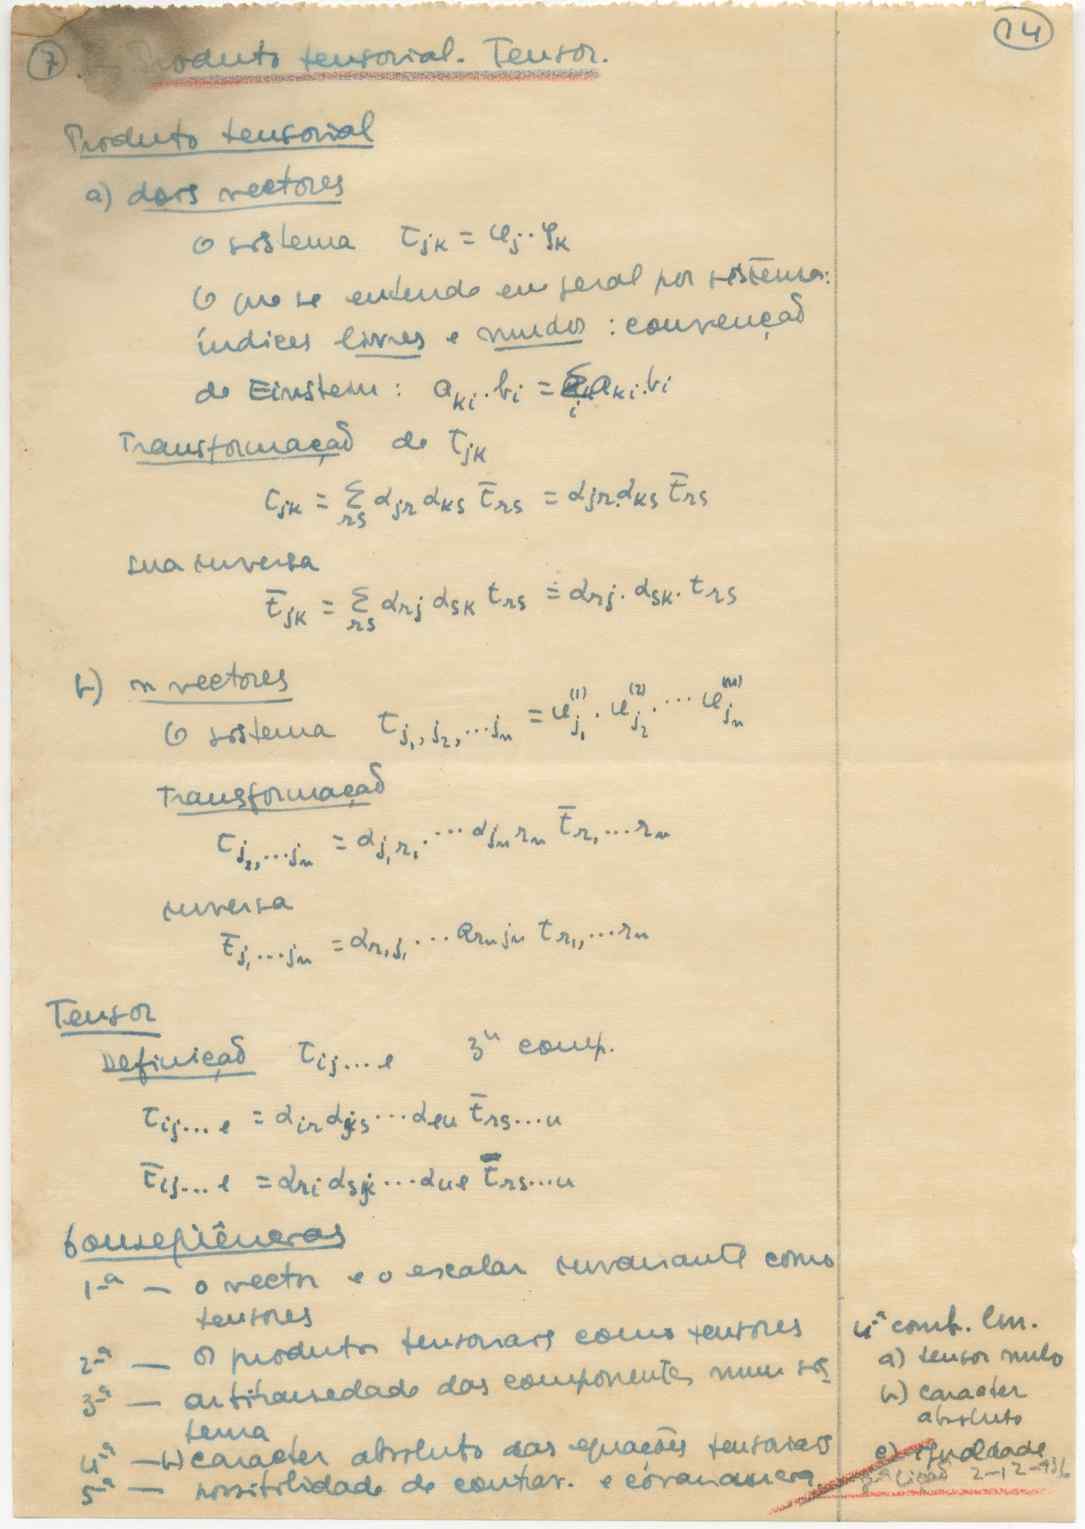 14
7. Produto tensorial. Tensor.
Produto tensorial
a) dois vectores
O sistema t_jk = φ_j · φ_k
O que se entende em geral por sistema:
índices livres e mudos : convenção
de Einstein : a_ki · b_i = Σ_i a_ki · b_i
Transformação de t_jk
t_jk = Σ_rs α_jr α_ks t̄_rs = α_jr · α_ks t̄_rs
sua inversa
t̄_jk = Σ_rs α_rj α_sk t_rs = α_rj · α_sk · t_rs
b) n vectores
O sistema t_j₁,j₂,...j_n = φ_j₁^(1) · φ_j₂^(2) · ... φ_j_n^(n)
Transformação
t_j₁,...j_n = α_j₁r₁ ... α_j_n r_n t̄_r₁...r_n
inversa
t̄_j₁...j_n = α_r₁j₁ ... α_r_n j_n t_r₁,...r_n
Tensor
Definição t_ij...l 3ⁿ comp.
t_ij...l = α_ir α_js ... α_lu t̄_rs...u
t̄_ij...l = α_ri α_sj ... α_ul t̄_rs...u
Conseqüências
1ª — o vector e o escalar invariante como
tensores
2ª — Os produtos tensoriais como tensores
3ª — arbitrariedade das componentes num sis
tema
4ª — b) caracter absoluto das equações tensoriais
5ª — possibilidade de contrav. e covariancia
4ª comb. lin.
a) tensor nulo
b) caracter
absoluto
c) igualdade
lição 2-12-936